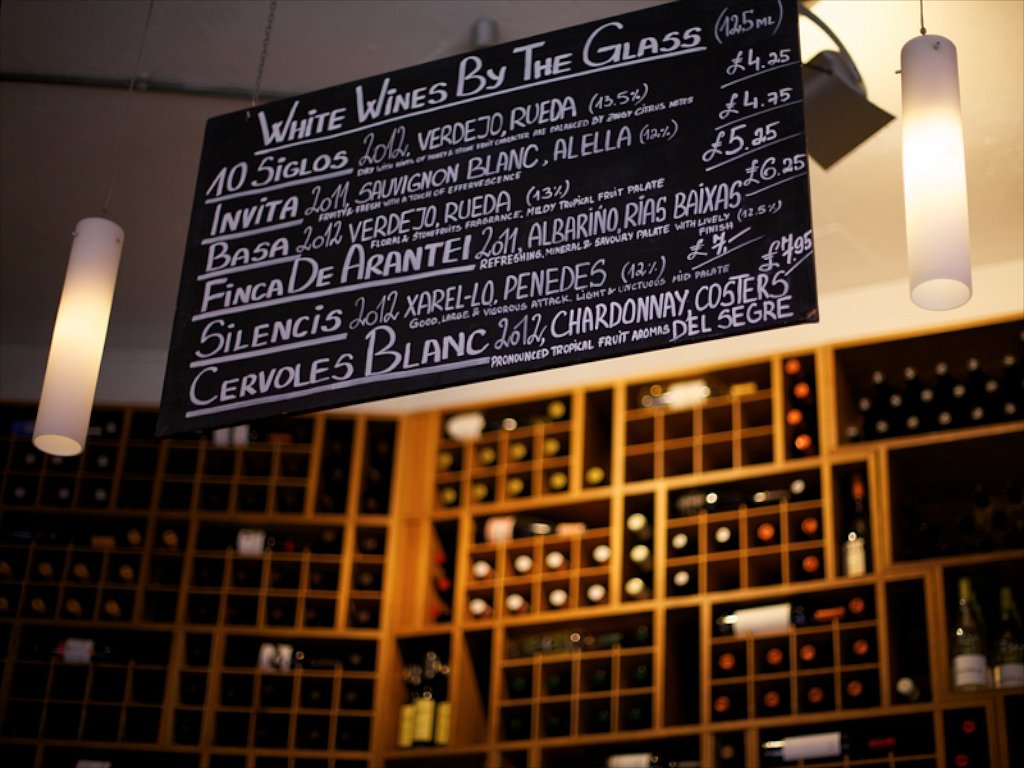 WHITE WINES BY THE GLASS (125ML)
10 SIGLOS 2012, VERDEJO, RUEDA (13.5%) £4.25
DRY WITH HINTS OF HONEY & STONE FRUIT CHARACTER ARE BALANCED BY ZINGY CITRUS NOTES
INVITA 2011, SAUVIGNON BLANC, ALELLA (12%) £4.75
FRUITY & FRESH WITH A TOUCH OF EFFERVESCENCE
BASA 2012 VERDEJO, RUEDA (13%) £5.25
FLORAL & STONEFRUITS FRAGRANCE, MILDY TROPICAL FRUIT PALATE
FINCA DE ARANTEI 2011, ALBARIÑO, RIAS BAIXAS £6.25
REFRESHING, MINERAL & SAVOURY PALATE WITH LIVELY FINISH (12.5%)
SILENCIS 2012 XAREL-LO, PENEDES (12%) £7.-
GOOD, LARGE & VIGOROUS ATTACK. LIGHT & UNCTUOUS MID PALATE
CERVOLES BLANC 2012, CHARDONNAY, COSTERS DEL SEGRE £7.95
PRONOUNCED TROPICAL FRUIT AROMAS